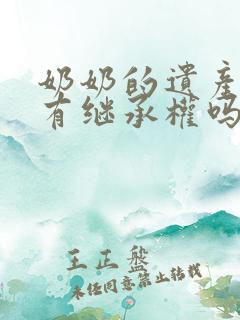 奶奶的遺產
有继承權吗
王正盤
未经同意禁止转载